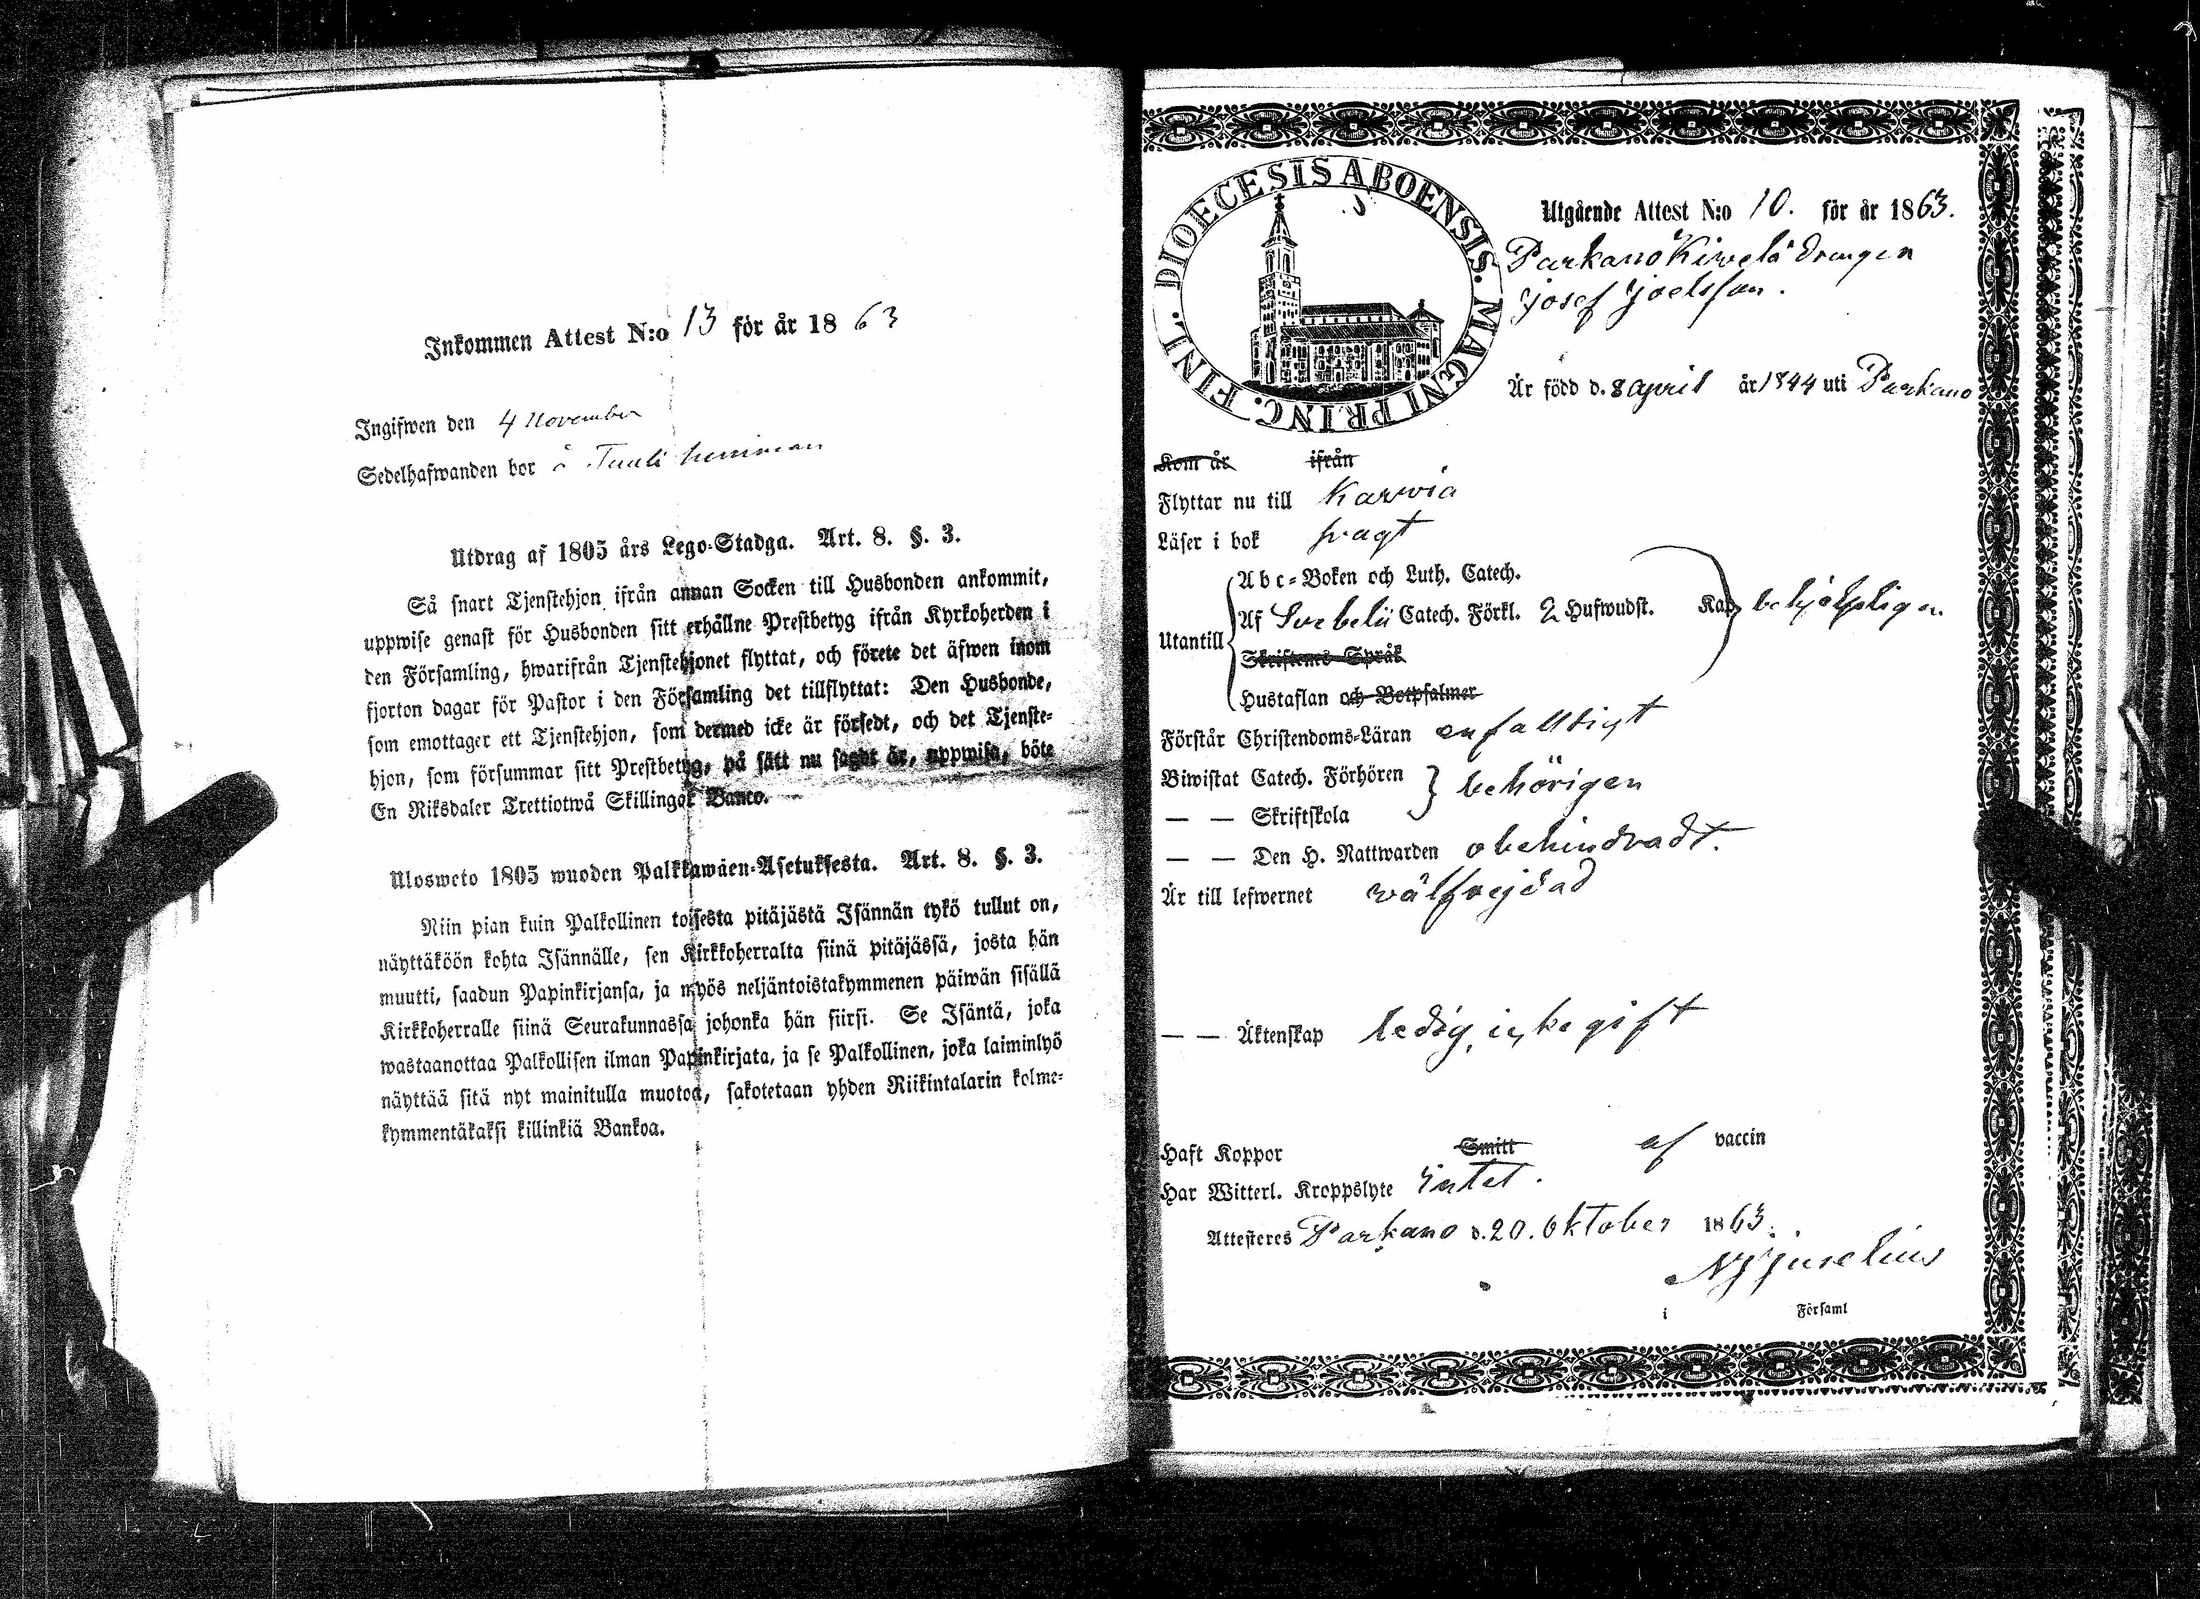 Inkommen Attest N:o 13 för år 1863
Ingifwen den 4 November
Sedelhafwanden bor å
Utdrag af 1805 års Lego-Stadga. Art. 8. §. 3.
Så snart Tjenstehjon ifrån annan Socken till Husbonden ankommit,
uppwise genast för Husbonden sitt erhållne Prestbetyg ifrån Kyrkoherden i
den Församling, hwarifrån Tjenstehjonet flyttat, och förete det äfwen inom
fjorton dagar för Pastor i den Församling det tillflyttat: Den Husbonde,
som emottager ett Tjenstehjon, som dermed icke är försedt, och det Tjenste-
hjon, som försummar sitt Prestbetyg, på sätt nu sagdt är, uppwisa, böte
En Riksdaler Trettiotwå Skillingar Banco.
Ulosweto 1805 wuoden Palkkawäen-Asetuksesta. Art. 8. §. 3.
Niin pian kuin Palkollinen toisesta pitäjästä Isännän tykö tullut on,
näyttäköön kohta Isännälle, sen Kirkkoherralta siinä pitäjässä, josta hän
muutti, saadun Papinkirjansa, ja myös neljäntoistakymmenen päiwän sisällä
Kirkkoherralle siinä Seurakunnassa johonka hän siirsi. Se Isäntä, joka
wastaanottaa Palkollisen ilman Papinkirjata, ja se Palkollinen, joka laiminlyö
näyttää sitä nyt mainitulla muotoa, sakotetaan yhden Riikintalarin kolme-
kymmentäkaksi killinkiä Bankoa.
DIOECESIS ABOENSIS. MAGNI PRINC. FINL.
Utgående Attest N:o 10. för år 1863.
Parkano Kiwelä Drengen
Josef Joelsson.
Är född d. 8 april år 1844 uti Parkano
Kom år ifrån
Flyttar nu till Karvia
Läser i bok svagt
Utantill
Abc-Boken och Luth. Catech.
Af Svebelii Catech. Förkl. 2 Hufwudst. Kap behjelpligen.
Skriftens Språk
Hustaflan och Botpsalmer
Förstår Christendoms-Läran enfalldigt
Biwistat Catech. Förhören behörigen
— — Skriftskola
— — Den H. Nattwarden obehindradt.
Är till lefwernet wälfrejdad
— — Äktenskap ledig, icke gift
Haft Koppor Smitt af vaccin
Har Witterl. Kroppslyte intet.
Attesteres Parkano d. 20. Oktober 1863.
Juselius
i Församl